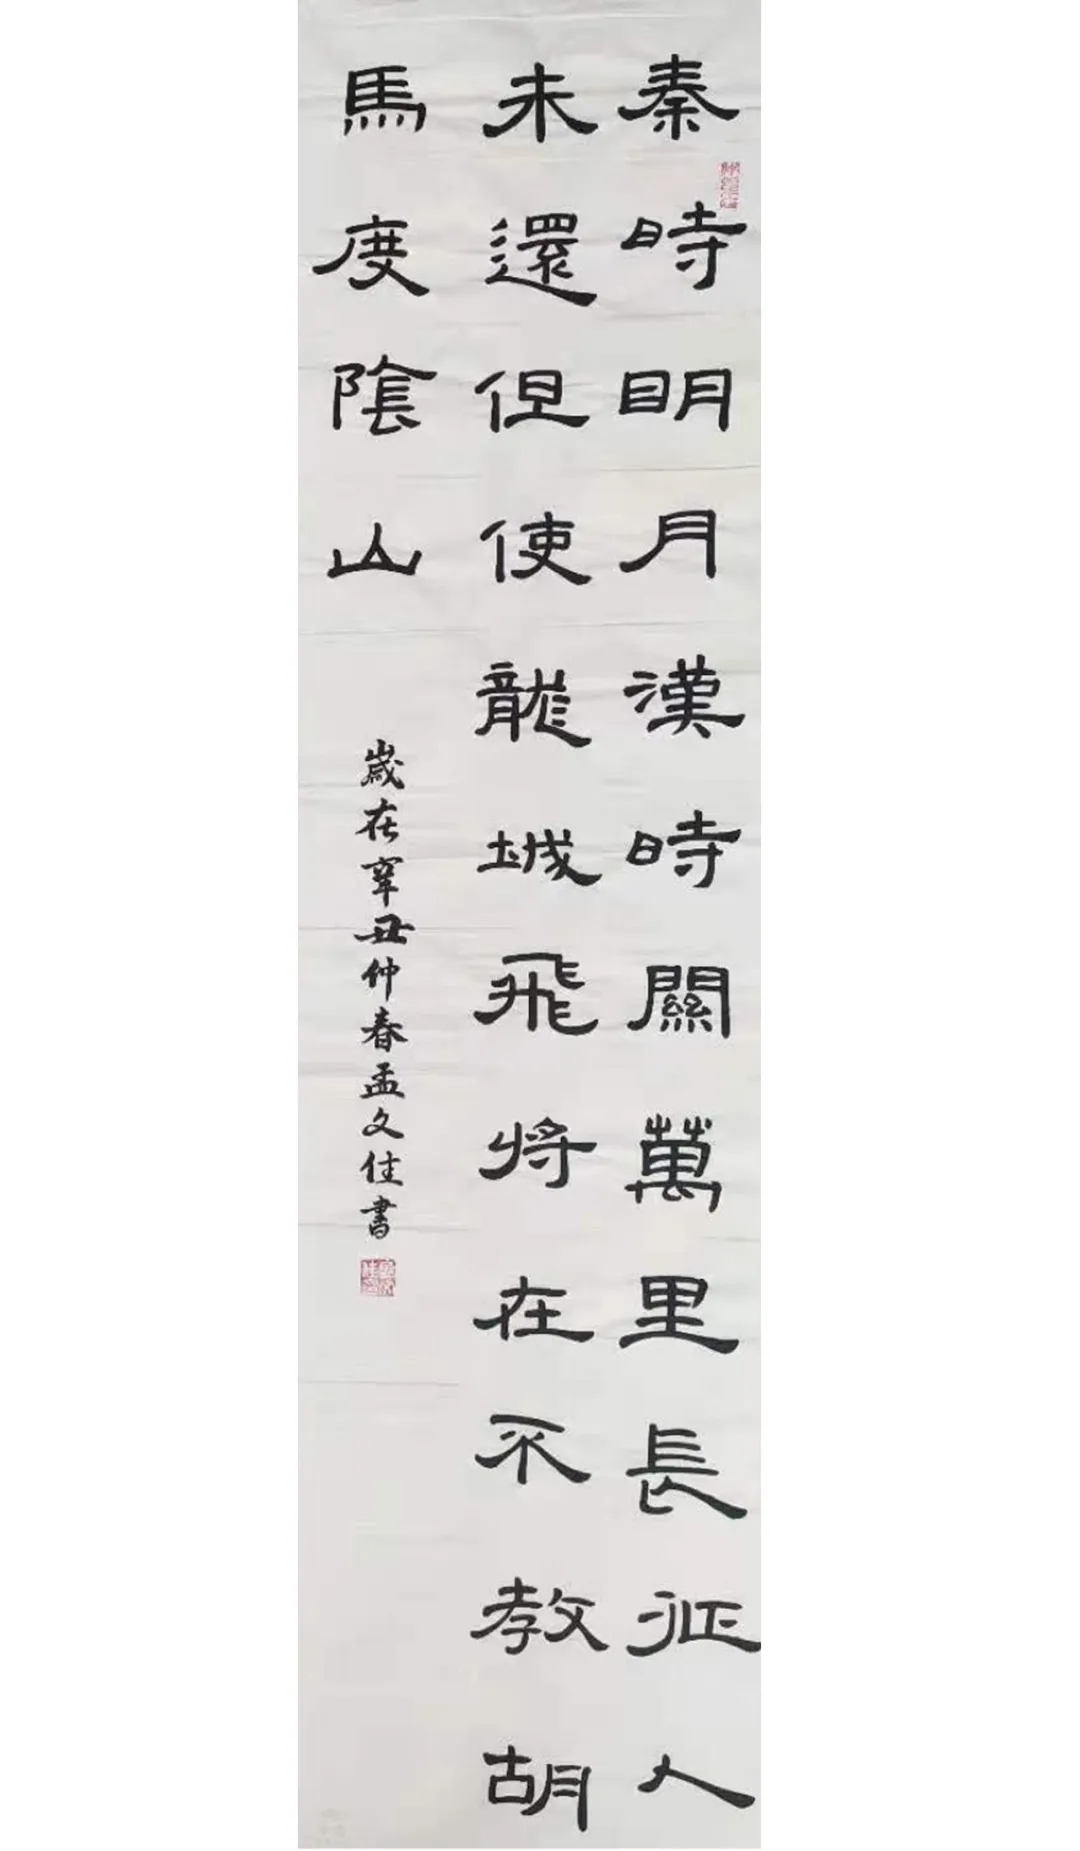 秦時明月漢時關萬里長征人
未還但使龍城飛將在不教胡
馬度陰山
歲在辛丑仲春孟文佳書